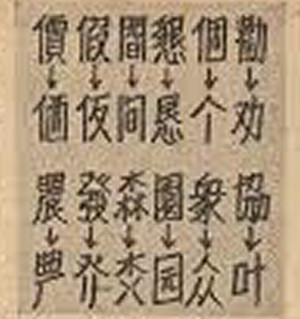 價 假 間 懇 個 勸
↓ ↓ ↓ ↓ ↓ ↓
価 仮 恳 个 劝
農 發 森 園 衆 協
↓ ↓ ↓ ↓ ↓ ↓
园 众 叶